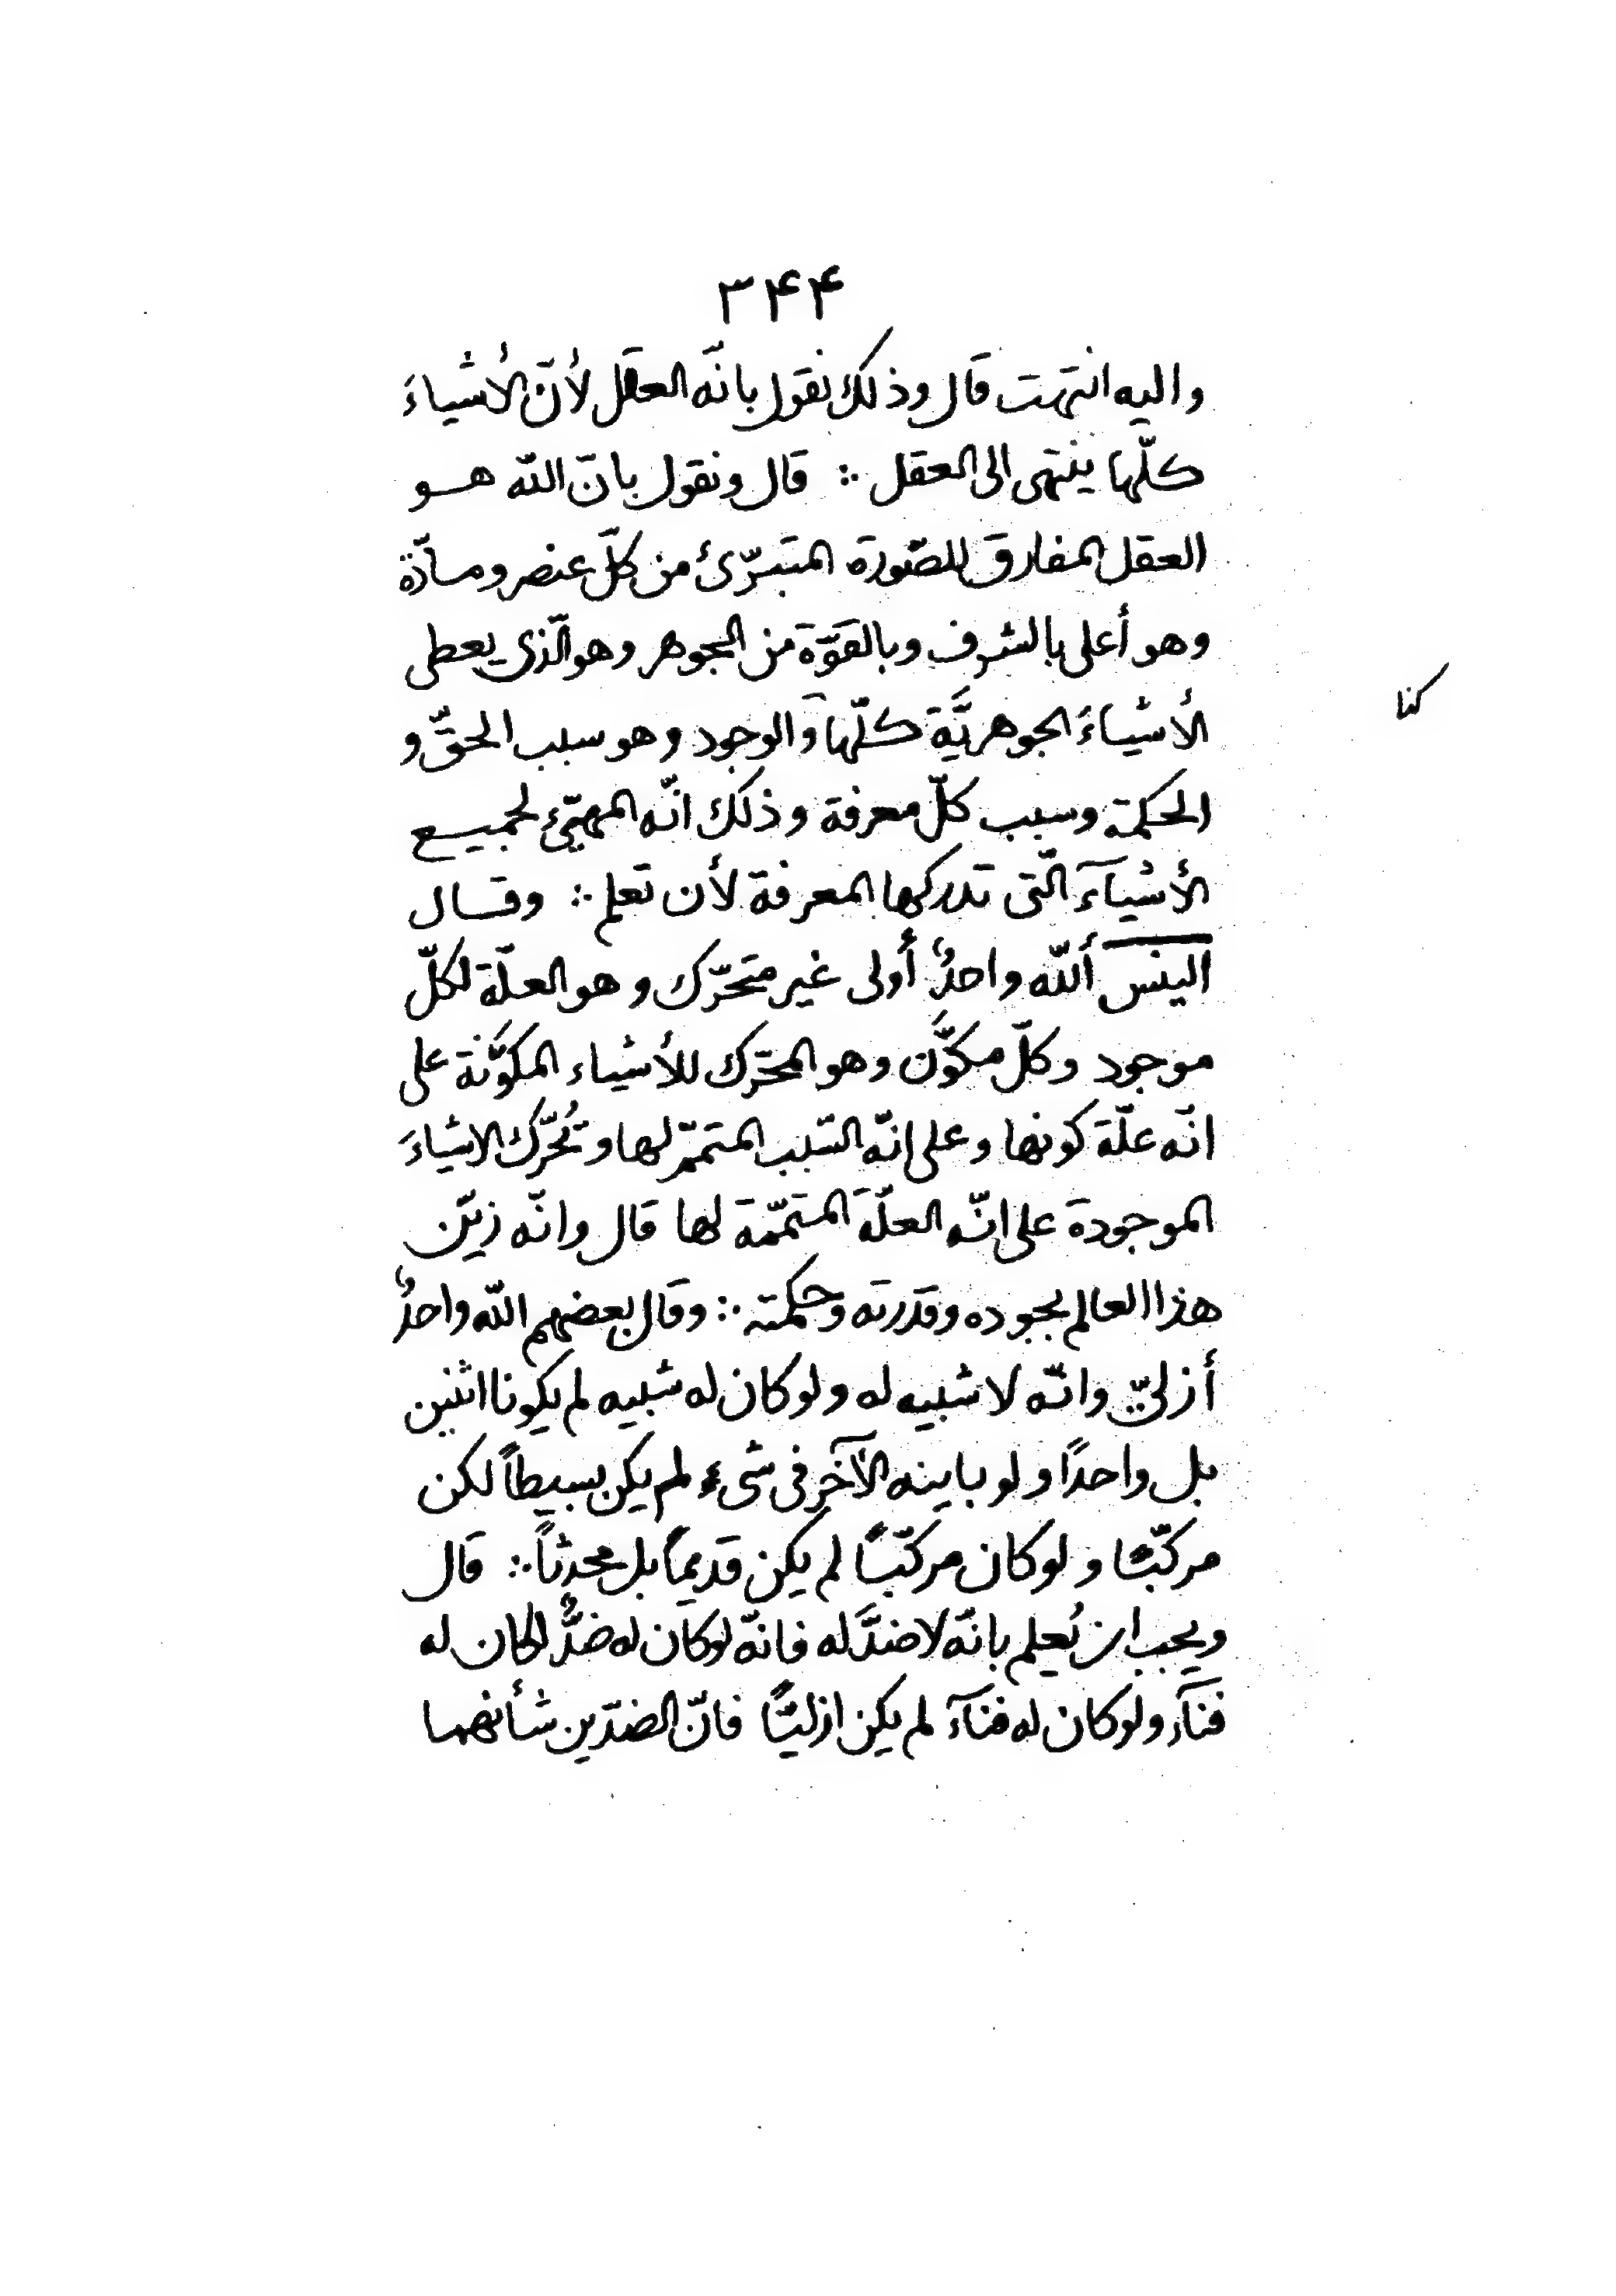 ۳۴۴
واليه انتهت قال وذلك نقول بانّه العقل لأنّ الأشياءَ
كلّها ينتهى الى العقل ∴ قال ونقول بانّ اللّه هـو
العقل المفارق للصّورة المتبـرّئ من كلّ عنصر ومـادّة
وهو أعلى بالشرف وبالقوّة من الجوهر وهو الّذى يعطى
الأشياءَ الجوهريَّة كلّها والوجود وهو سبب الحقّ و
كذا
الحكمة وسبب كلّ معرفة وذلك انّه المهيّئ لجميـع
الأشيآءَ الّتى تدركها المعرفة لأن تعلم ∴ وقـال
الينس أللّه واحدٌ أولى غير متحرّك وهو العلّة لكلّ
موجود وكلّ مكوَّن وهو المحرّك للأشياء المكوَّنة على
انّه علّة كونها وعلى انّه السّبب المتمّم لها وتُحرّك الاشياءَ
الموجودة على انّه العلّة المتمّمة لها قال وانّه زيّن
هذا العالم بجوده وقدرته وحكمته ∴ وقال بعضهم اللّه واحدٌ
أزلىّ وانّه لا شبيه له ولو كان له شبيه لم يكونا اثنين
بل واحدًا ولو باينه الآخر فى شىء لم يكن بسيطاً لكن
مركّبًا ولو كان مركّبًا لم يكن قديمًا بل محدثاً ∴ قال
ويجب ان نُعلم بانّه لا ضدَّ له فانّه لو كان له ضدٌّ لكان له
فنآء ولو كان له فنآء لم يكن ازليًّا فانّ الضدّين شأنهما